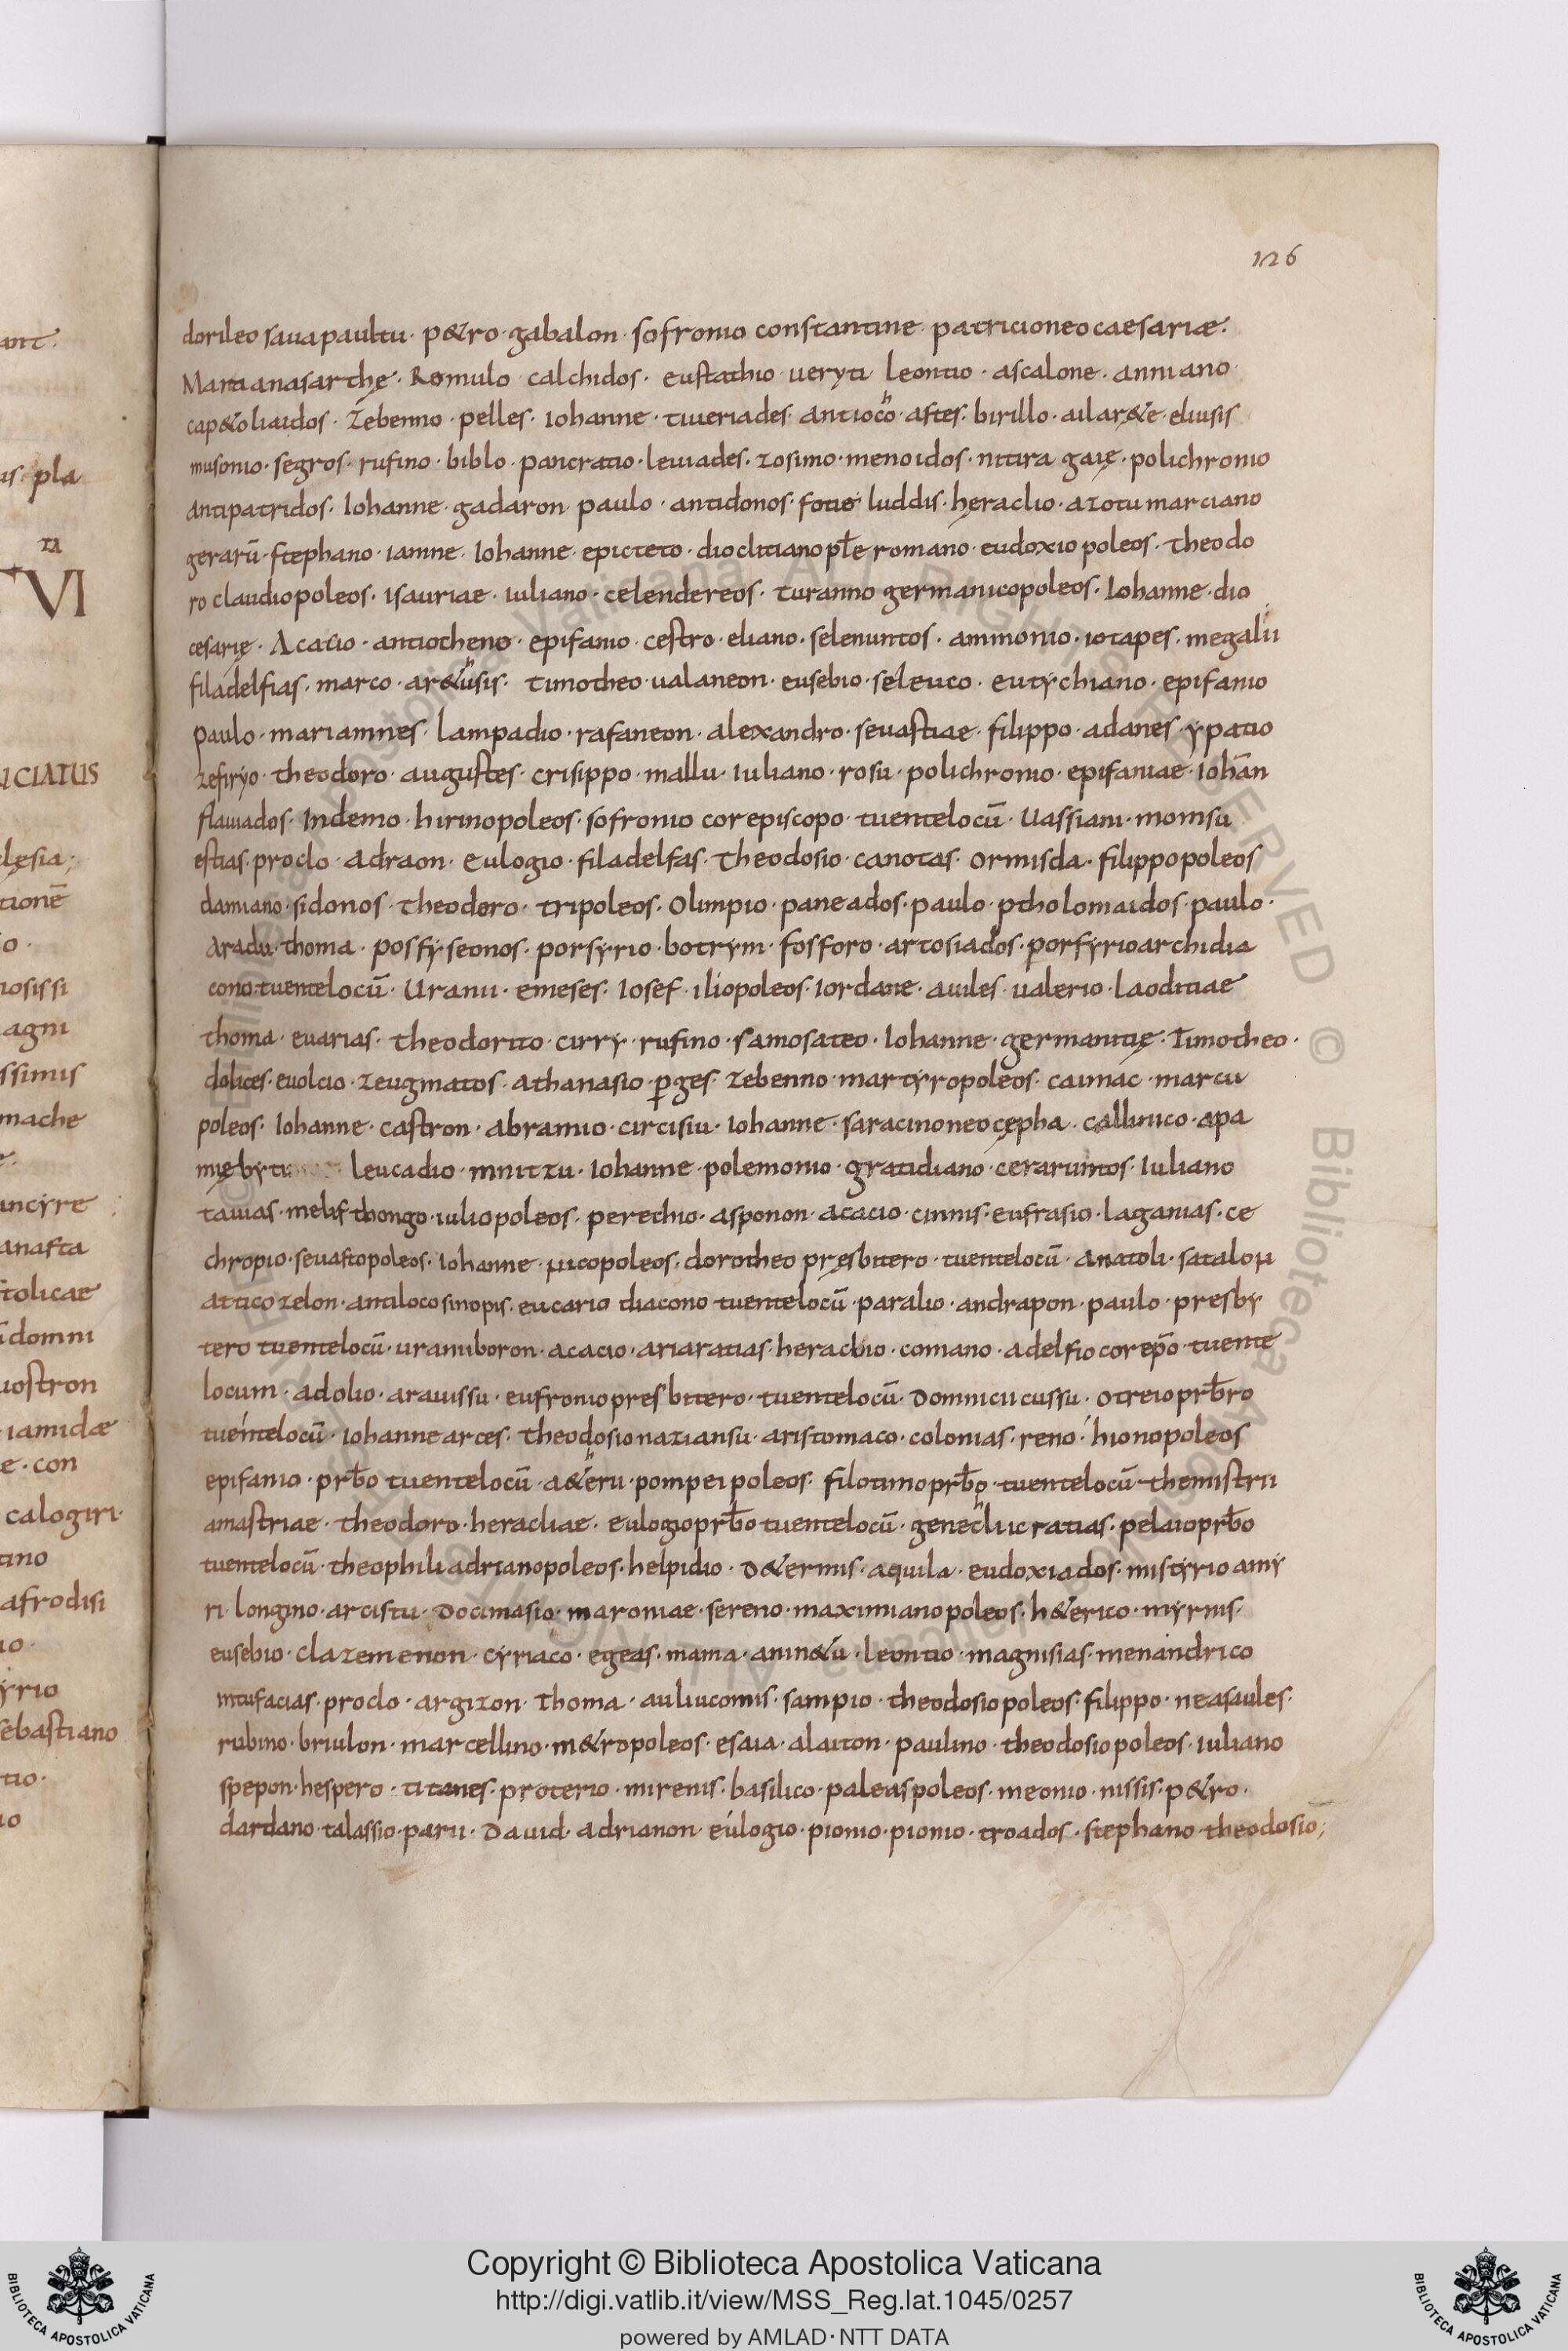 126
dorileo sauapaultu · p&ro · gabalon · sofronio constantine · patricioneocaesariæ ·
Maraanasarthę · Romulo · calchidos · eustathio · ueryti · leontio · ascalone · anniano ·
cap&oliaidos · Zebenno · pelles · Iohanne · tiueriades · antioco · astes · birillo · ailar&e · eliusis
musonio · segros · rufino · biblo · pancratio · leuiades · zosimo · menoidos · nitira gaię · polichronio
antipatridos · Iohanne · gadaron · paulo · antidonos · fotio · luddis · heraclio · azotu marciano
gerarū · stephano · iamne · Iohanne · epicteto · dioclitiano romano · eudoxio poleos · theodo
ro claudiopoleos · isauriae · iuliano · celendereos · turanno germanicopoleos · Iohanne · dio
cesarię · Acacio · antiocheno · epifanio · cestro · eliano · selenuntos · ammonio · iotapes · megalii
filadelfias · marco · ar&usis · timotheo · ualaneon · eusebio · seleuco · eutychiano · epifanio
paulo · mariamnes · lampadio · rafaneon · alexandro · seuastiae · filippo · adanes · ypatio
zefiryo · theodoro · augustes · crisippo · mallu · iuliano · rosu · polichronio · epifaniae · iohān
flauiados · Indemo · hirinopoleos · sofronio corepiscopo · tuentelocū · Uassiani · momsu
estias · proclo · adraon · eulogio · filadelfas · theodosio · canotas · ormisda · filippopoleos
damiano · sidonos · theodoro · tripoleos · Olimpio · paneados · paulo · ptholomaidos · paulo ·
aradu · thoma · posfyseonos · porsyrio · botrym · fosforo · artosiados · porfyrioarchidia
cono · tuentelocū · Uranii · emeses · Iosef · iliopoleos · Iordane · auiles · ualerio · laoditiae
thoma · euarias · theodorito · cirry · rufino · samosateo · Iohanne · germanitię · Timotheo ·
dolices · euolcio · zeugmatos · athanasio · p̱ges · zebenno · martyropoleos · caimac · marcu
poleos · Iohanne · castron · abramio · circisiu · Iohanne · saracinoneocępha · callinico · apa
mię byti leucadio · mnitzu · Iohanne · polemonio · gratidiano · ceraruntos · Iuliano
tauias · iuliopoleos · perechio · asponon · acacio · cinnis · eufrasio · laganias · ce
chropio · seuastopoleos · Iohanne · nicopoleos · dorotheo pręsbitero · tuentelocū · anatoli · satalon
attico zelon · antiloco sinopis · eucario diacono tuentelocū · paralio · andrapon · paulo · presby
tero tuentelocū · uraniiboron · acacio · ariaratias · heraclio · comano · adelfio corepō · tuente
locum · adolio · arauissu · eufronio presbitero · tuentelocū · Domnicii cussu · otreio prb̄ro
tuéntelocū · Iohanne arces · theodosio naziansu · aristomaco · colonias · reno · hionopoleos
epifanio · prb̄o tuentelocū · a&eru · pompeipoleos · filotimo prb̄o · tuentelocū · themistrii
amastriae · theodoro · heracliae · eulogio prb̄o tuentelocū · genecliicratias · pelaio prb̄o
tuentelocū · theophili adrianopoleos · helpidio · D&ermis · aquila · eudoxiados · mistyrio amy
ri · longino · arcistu · Docimasio · maroniae · sereno · maximianopoleos · h&erico · myrnis ·
eusebio · clazemenon · cyriaco · egeas · mama · anin&u · leontio · magnisias · menándrico
nitufacias · proclo · argizon · thoma · auliucomis · sampio · theodosiopoleos · filippo · neasaules ·
rubino · briulon · marcellino · m&ropoleos · esaia · alaiton · paulino · theodosiopoleos · iuliano
spepon · hespero · titanes · proterio · mirenis · basilico · paleaspoleos · meonio · nissis · p&ro ·
dardano · talassio · parii · David · adrianon · eúlogio · pionio · pionio · troados · stephano · theodosio;
ant ·
us · pla
ZI
VI
UCIATUS
clesia ·
tionē
o ·
nosissi
agni
ssimis
mache
e ·
ancyre
anasta
stolicae
domni
uostron
iamidæ
e · con
calogiri ·
tino
afrodisi
io ·
yrio
sebastiano
tio ·
io
Copyright © Biblioteca Apostolica Vaticana
http://digi.vatlib.it/view/MSS_Reg.lat.1045/0257
powered by AMLAD · NTT DATA
BIBLIOTECA APOSTOLICA VATICANA
BIBLIOTECA APOSTOLICA VATICANA